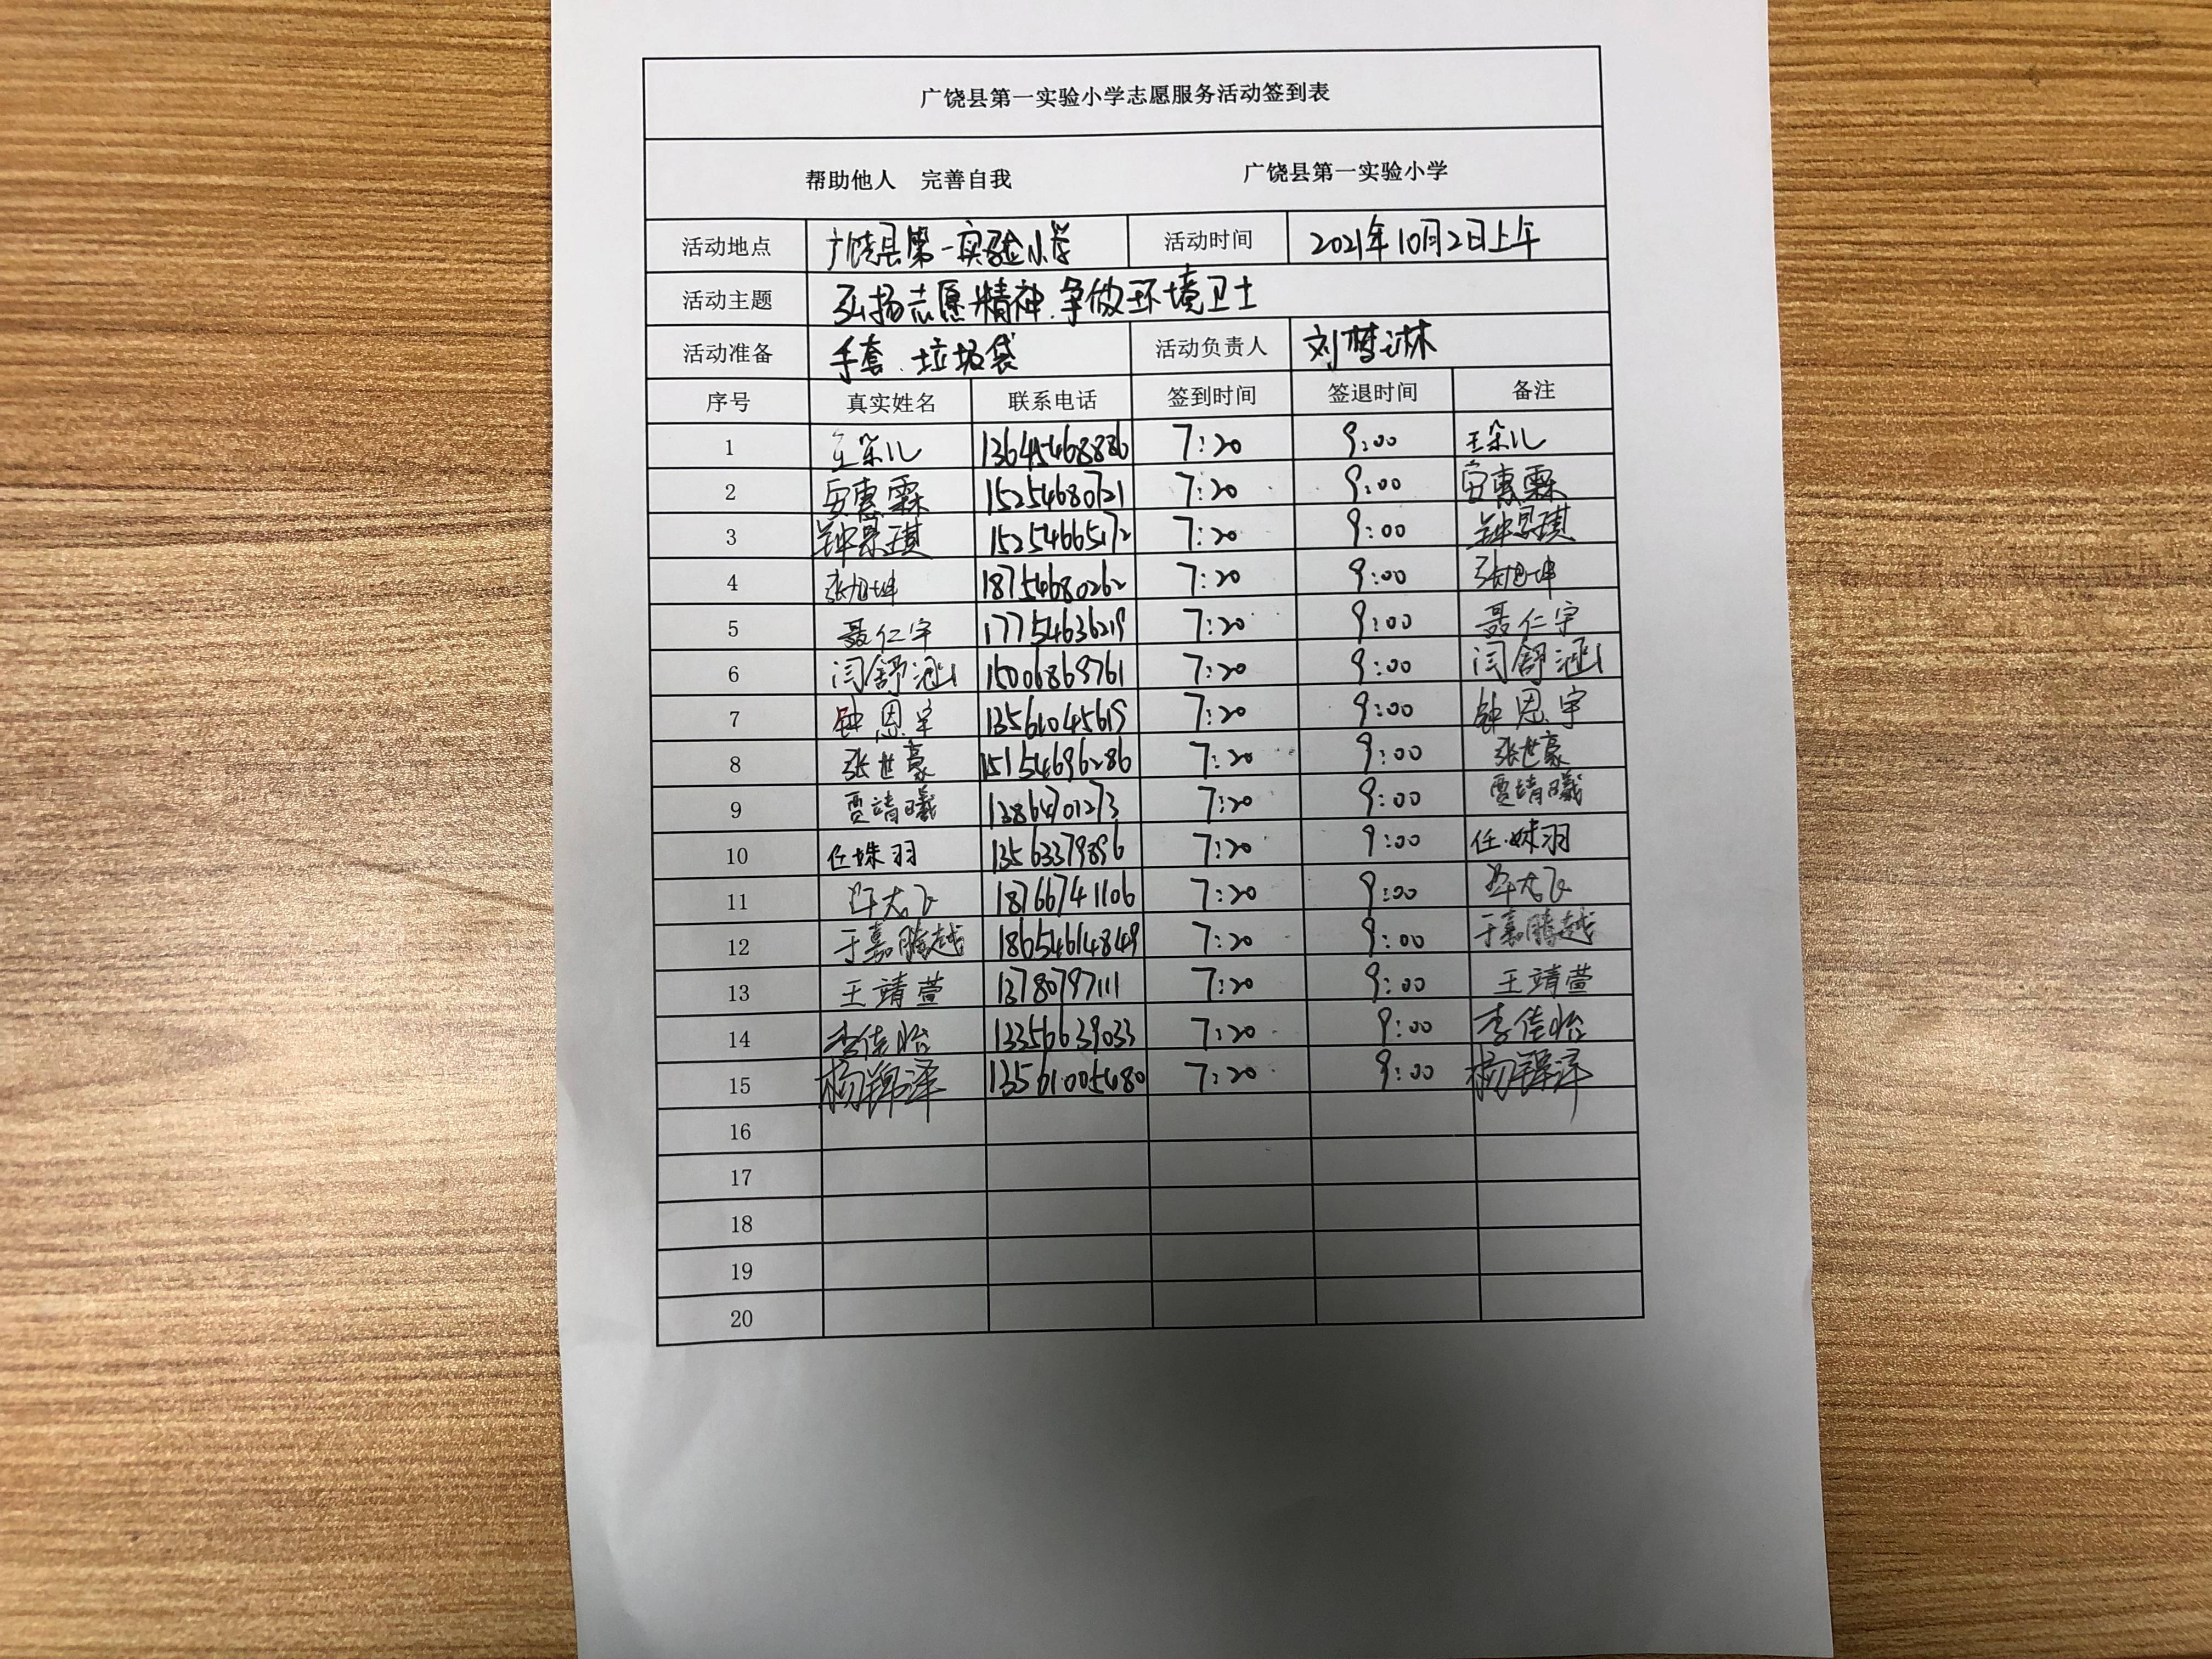 广饶县第一实验小学志愿服务活动签到表
帮助他人 完善自我 广饶县第一实验小学
活动地点 广饶县第一实验小学 活动时间 2021年10月2日上午
活动主题 弘扬志愿精神.争做环境卫士
活动准备 手套.垃圾袋 活动负责人 刘梦琳
序号 真实姓名 联系电话 签到时间 签退时间 备注
1 王朵儿 13645468886 7:20 9:00 王朵儿
2 安惠霖 15254680721 7:20 9:00 安惠霖
3 15254665172 7:20 9:00
4 张旭坤 18754680262 7:20 9:00 张旭坤
5 聂仁宇 17754636219 7:20 9:00 聂仁宇
6 闫舒涵 15006869761 7:20 9:00 闫舒涵
7 钟恩宇 13561045619 7:20 9:00 钟恩宇
8 张世豪 15154696286 7:20 9:00 张世豪
9 贾靖曦 13864701273 7:20 9:00 贾靖曦
10 任姝羽 13563379896 7:20 9:00 任姝羽
11 18766741106 7:20 9:00
12 于嘉腾越 18654614849 7:20 9:00 于嘉腾越
13 王靖萱 13780797111 7:20 9:00 王靖萱
14 李佳怡 13356639033 7:20 9:00 李佳怡
15 杨锦泽 13561005480 7:20 9:00 杨锦泽
16
17
18
19
20